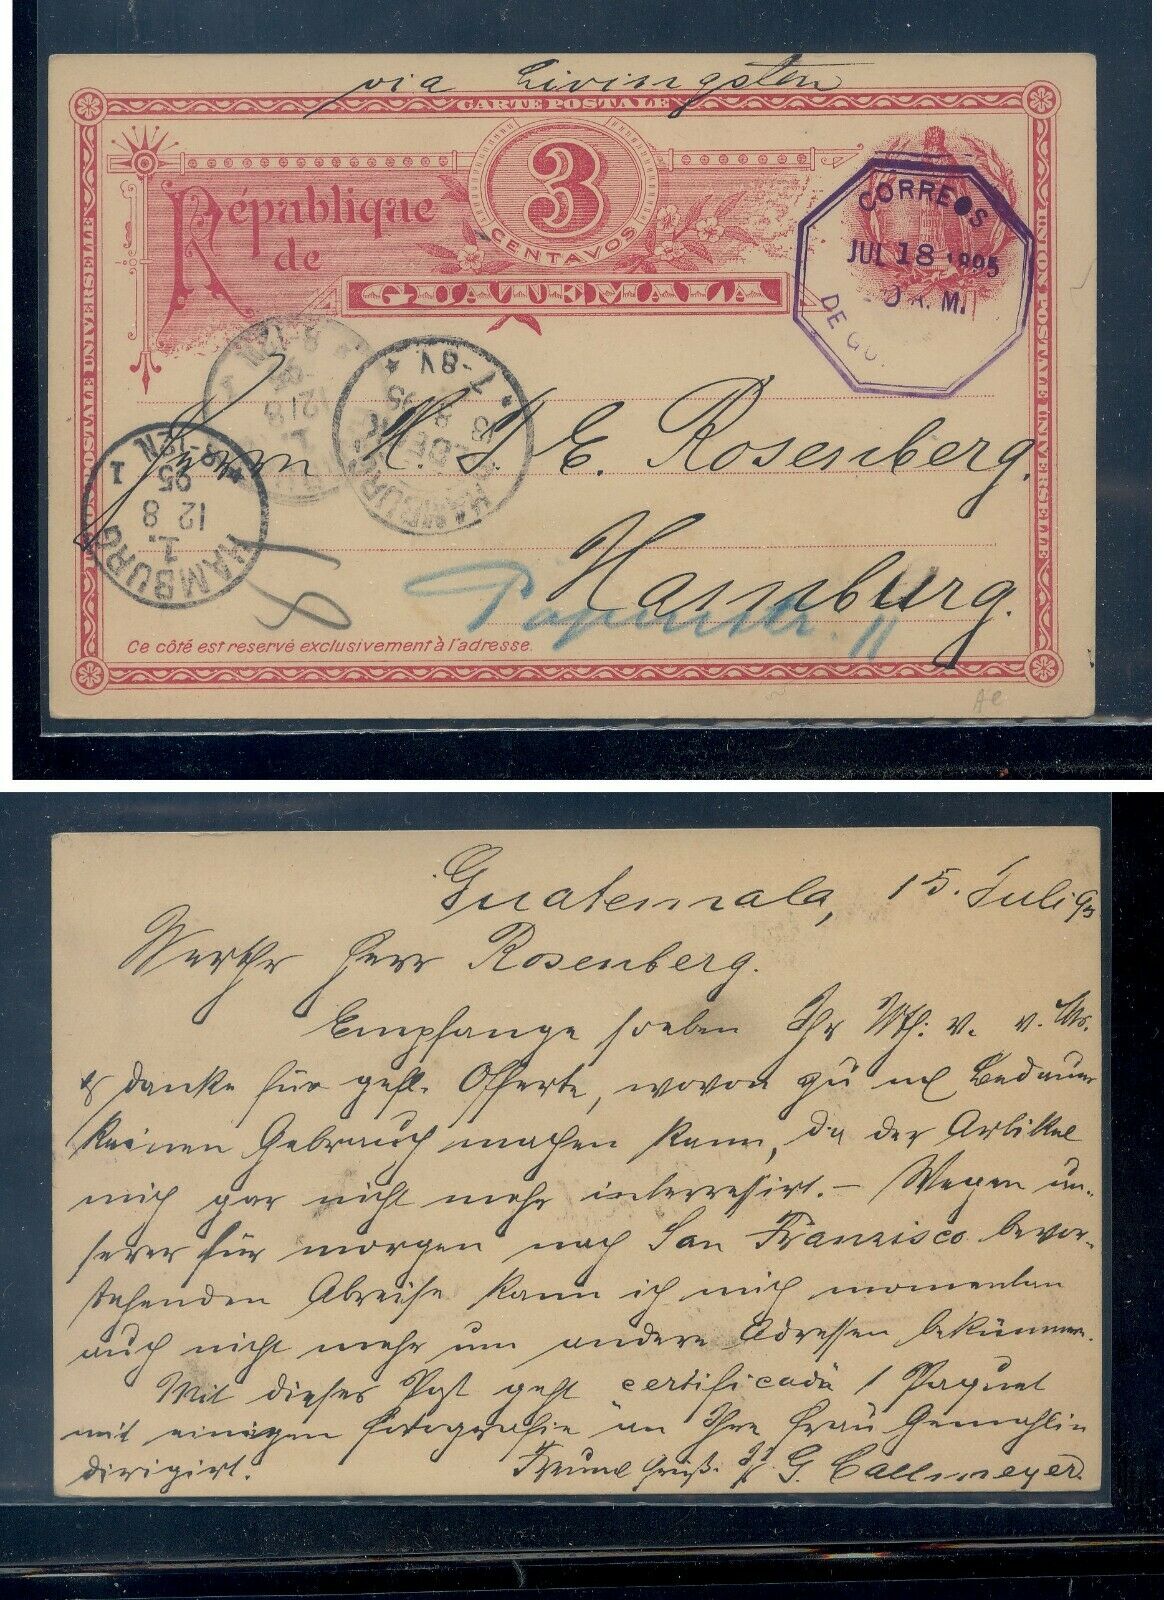 via Livingston
CARTE POSTALE
UNION POSTALE UNIVERSELLE
UNION POSTALE UNIVERSELLE
République
de
GUATEMALA
3
CENTAVOS
CORREOS
JUL 18 1895
A.M.
DE GU
7-8V.
95
HAMBURG
1.
12 8
95
1
Herrn H. J. E. Rosenberg.
Hamburg.
Papenstr. 11
Ce côté est reservé exclusivement à l'adresse.
Guatemala, 15. Juli 95
Werther Herr Rosenberg.
Empfange soeben Ihr v. v. Ms.
& danke für gefl. Offerte, wovon zu m/ Bedauern
keinen Gebrauch machen kann, da der Artikel
mich gar nicht mehr interressirt. – Wegen un-
serer für morgen nach San Franzisco bevor-
stehenden Abreise kann ich mich momentan
auch nicht mehr um andere Adressen bekümmern.
Mit dieser Post geht certificada 1 Paquet
mit einigen fotografie an Ihre Frau Gemahlin
dirigirt. Freundl Gruß. G. Callmeyer.